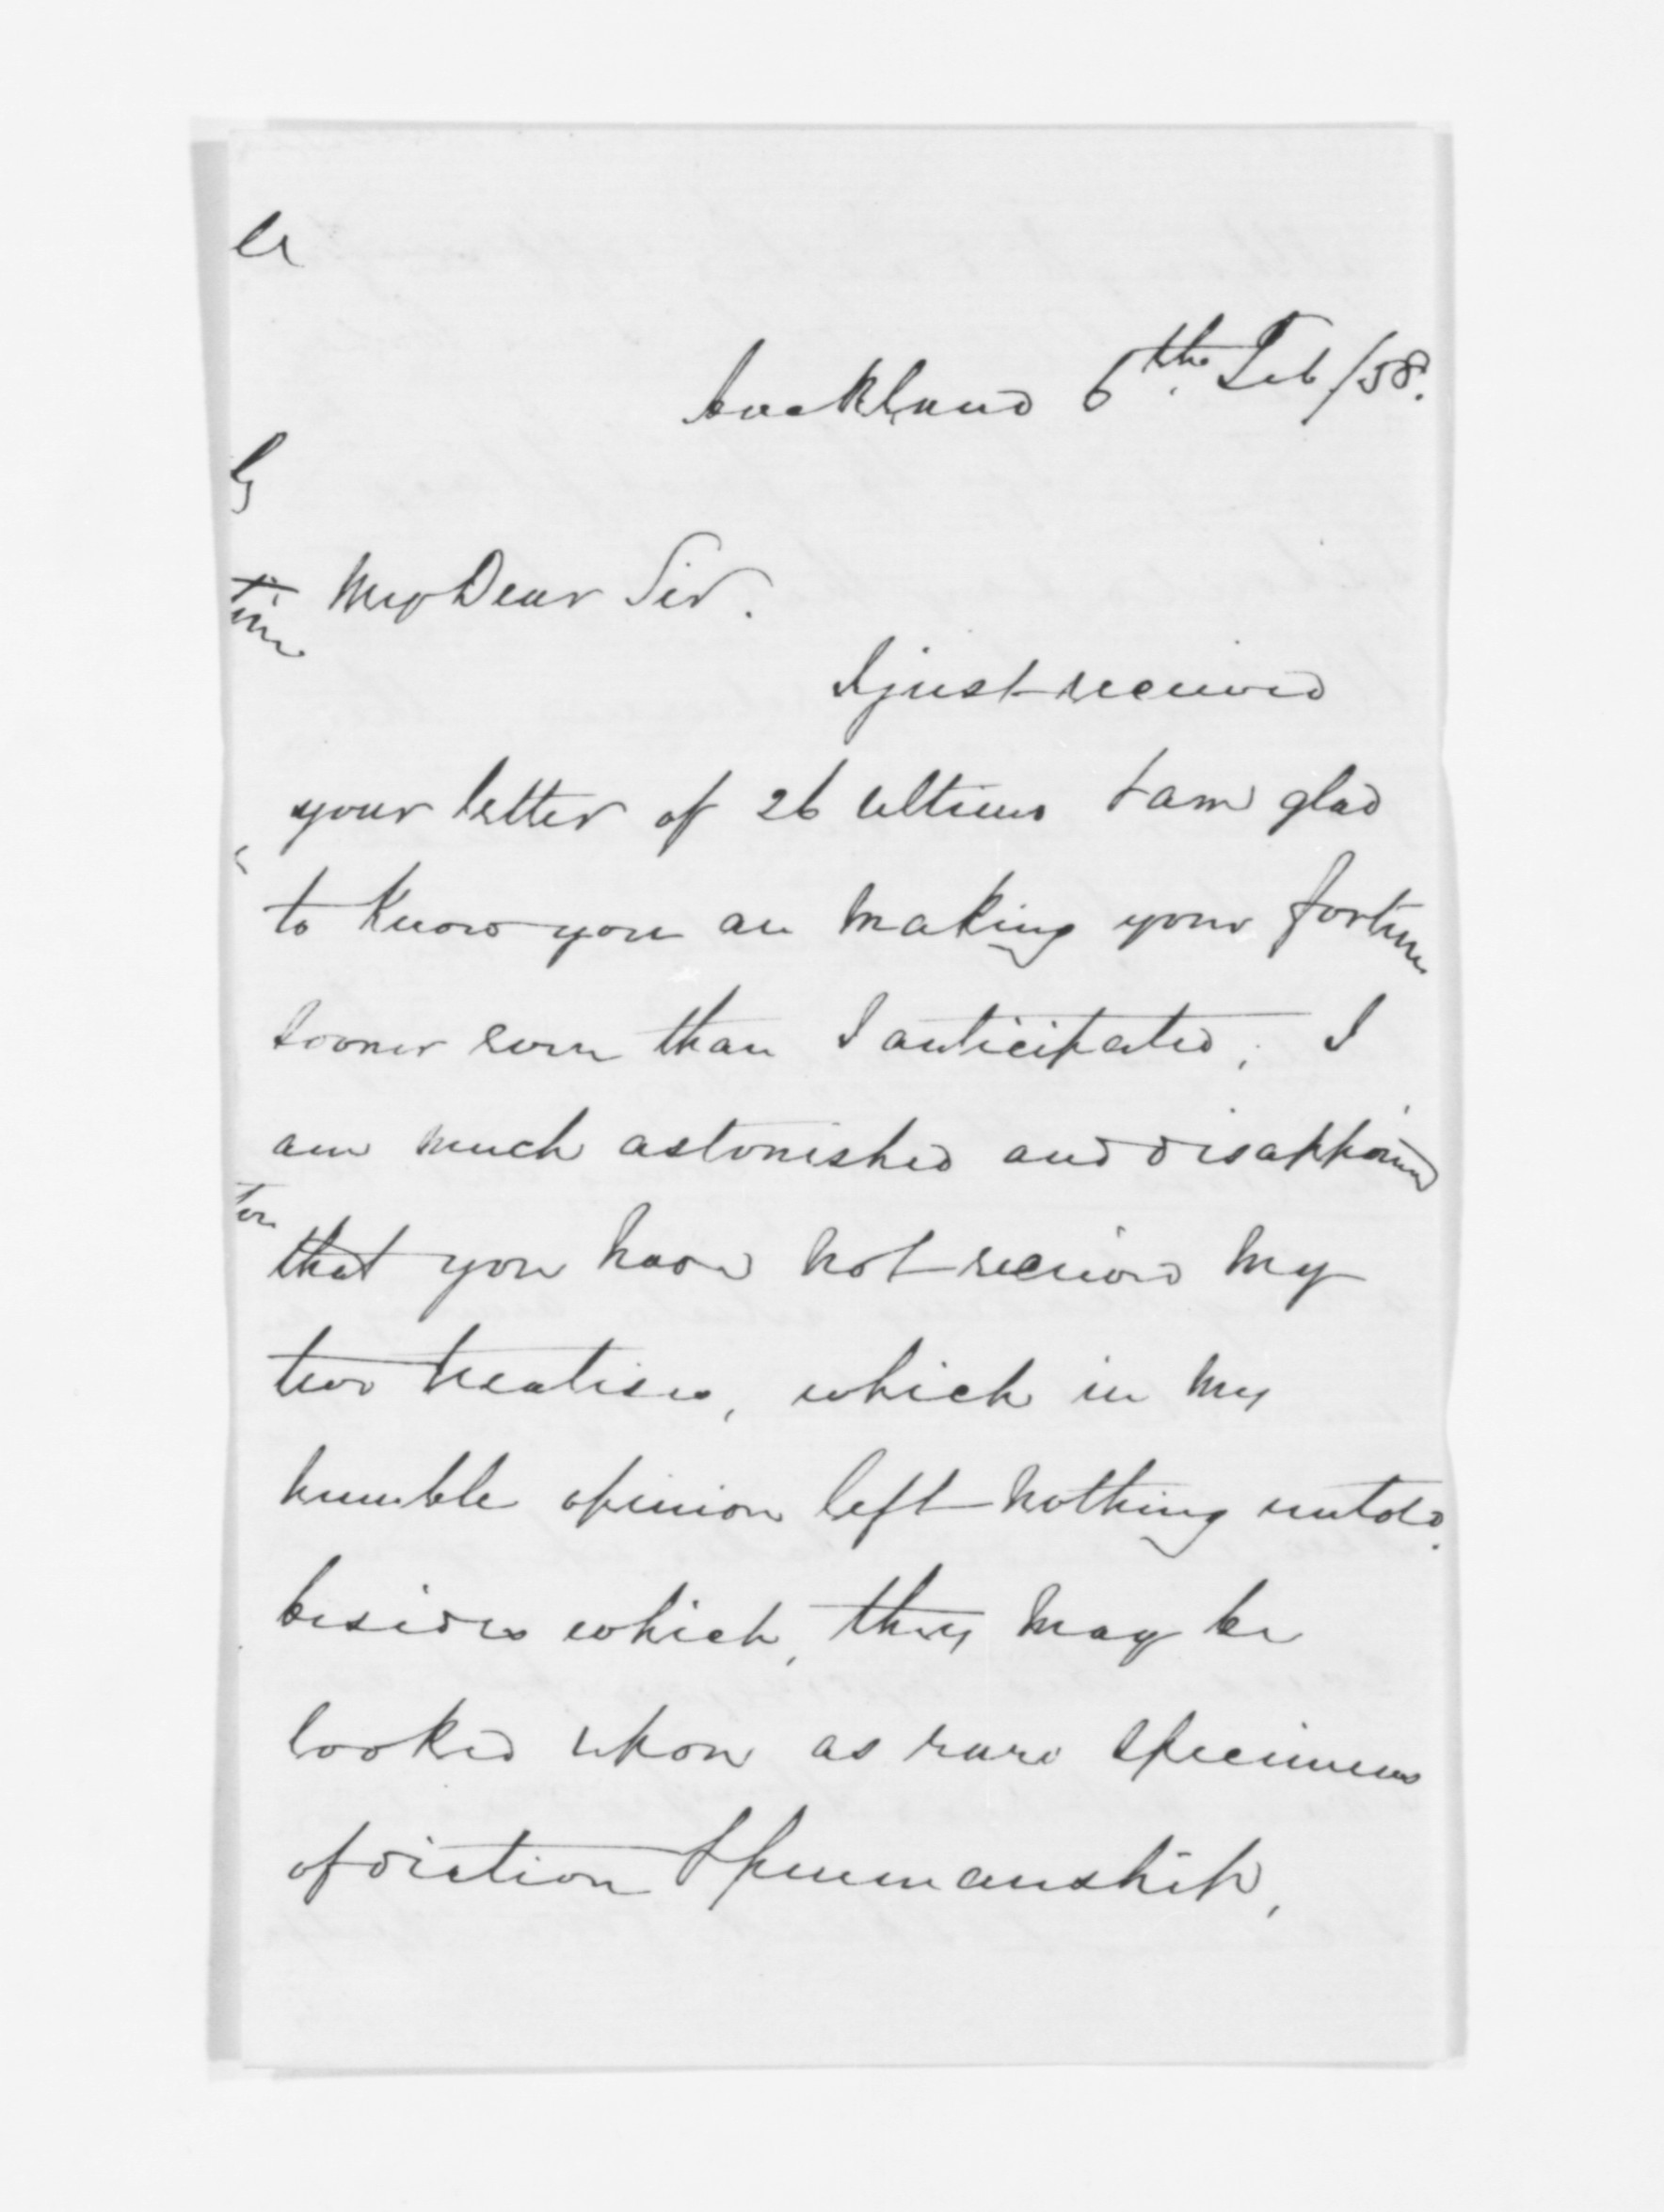 Auckland 6th. Feb/58.
My Dear Sir.
I just received
your letter of 26 ultimo & am glad
to know you are making your fortune
sooner even than I anticipated, I
am much astonished and disappointed
that you have not received my
two treatises, which in my
humble opinion left nothing untold.
besides which, they may be
looked upon as rare specimens
of diction & penmanship,